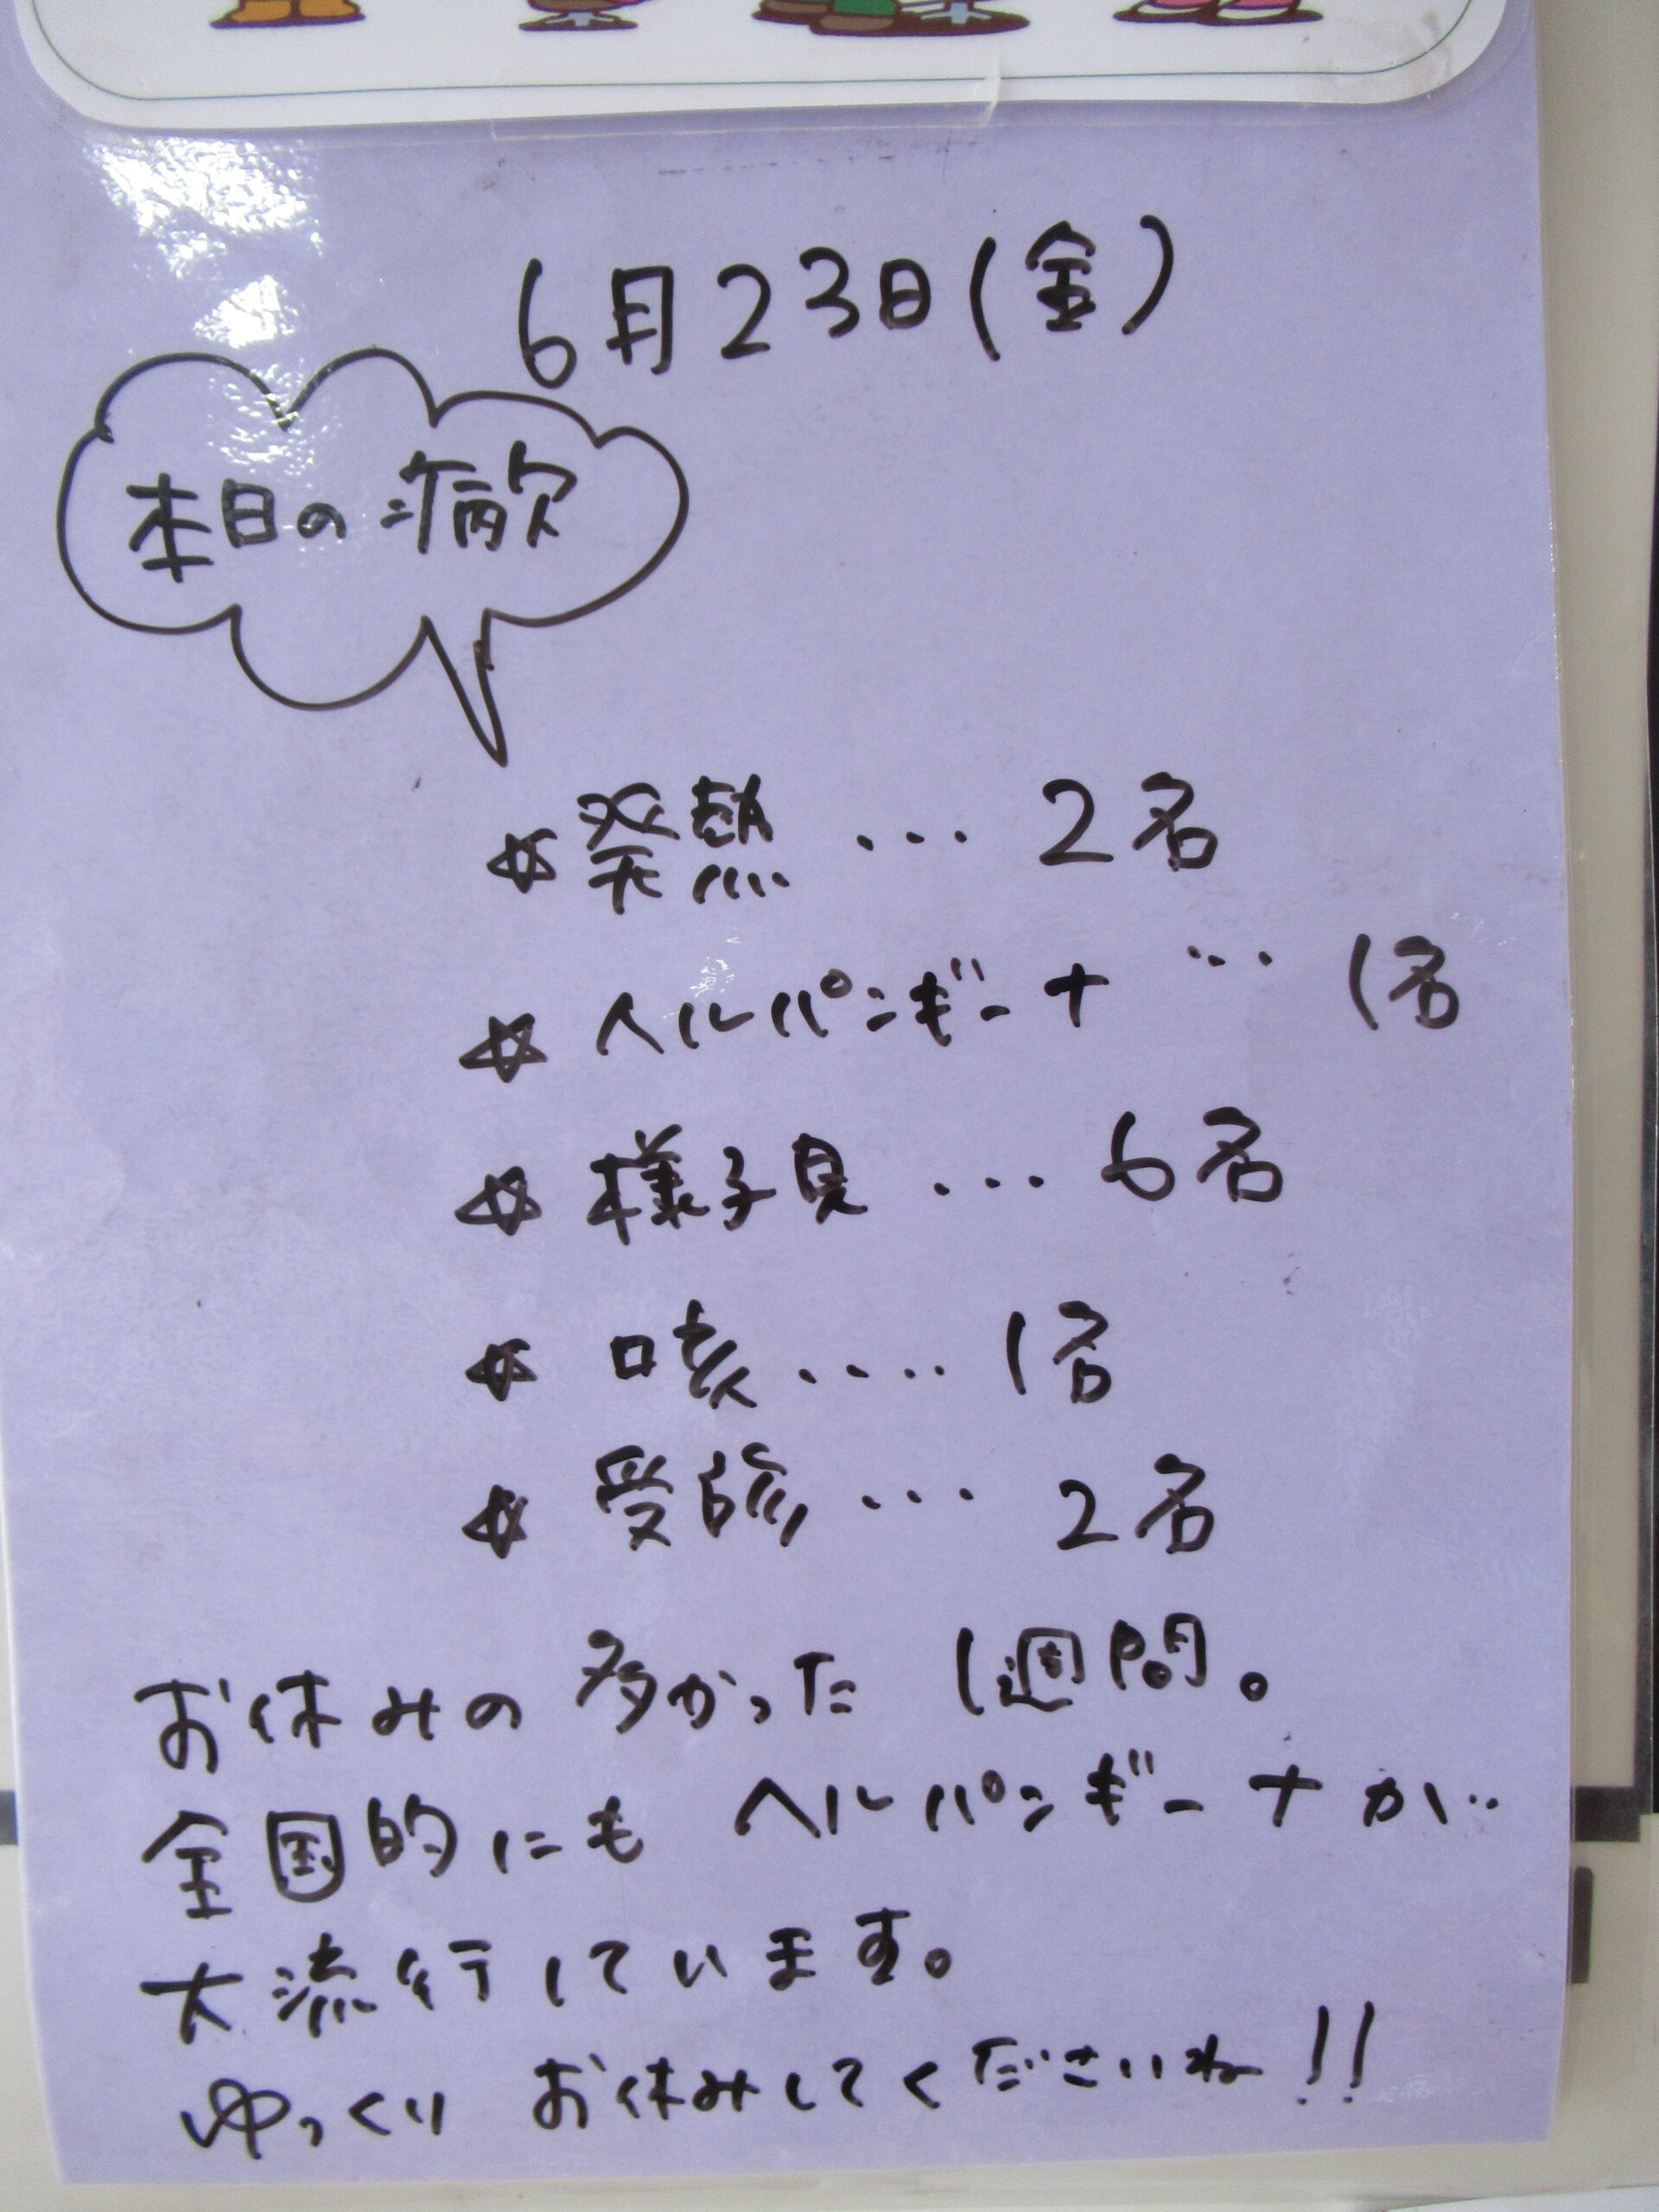 6月23日(金)
本日の病欠
☆発熱 ... 2名
☆ヘルパンギーナ ... 1名
☆様子見 ... 6名
☆咳 .... 1名
☆受診 ... 2名
お休みの多かった1週間。
全国的にもヘルパンギーナが..
大流行しています。
ゆっくりお休みしてくださいね!!